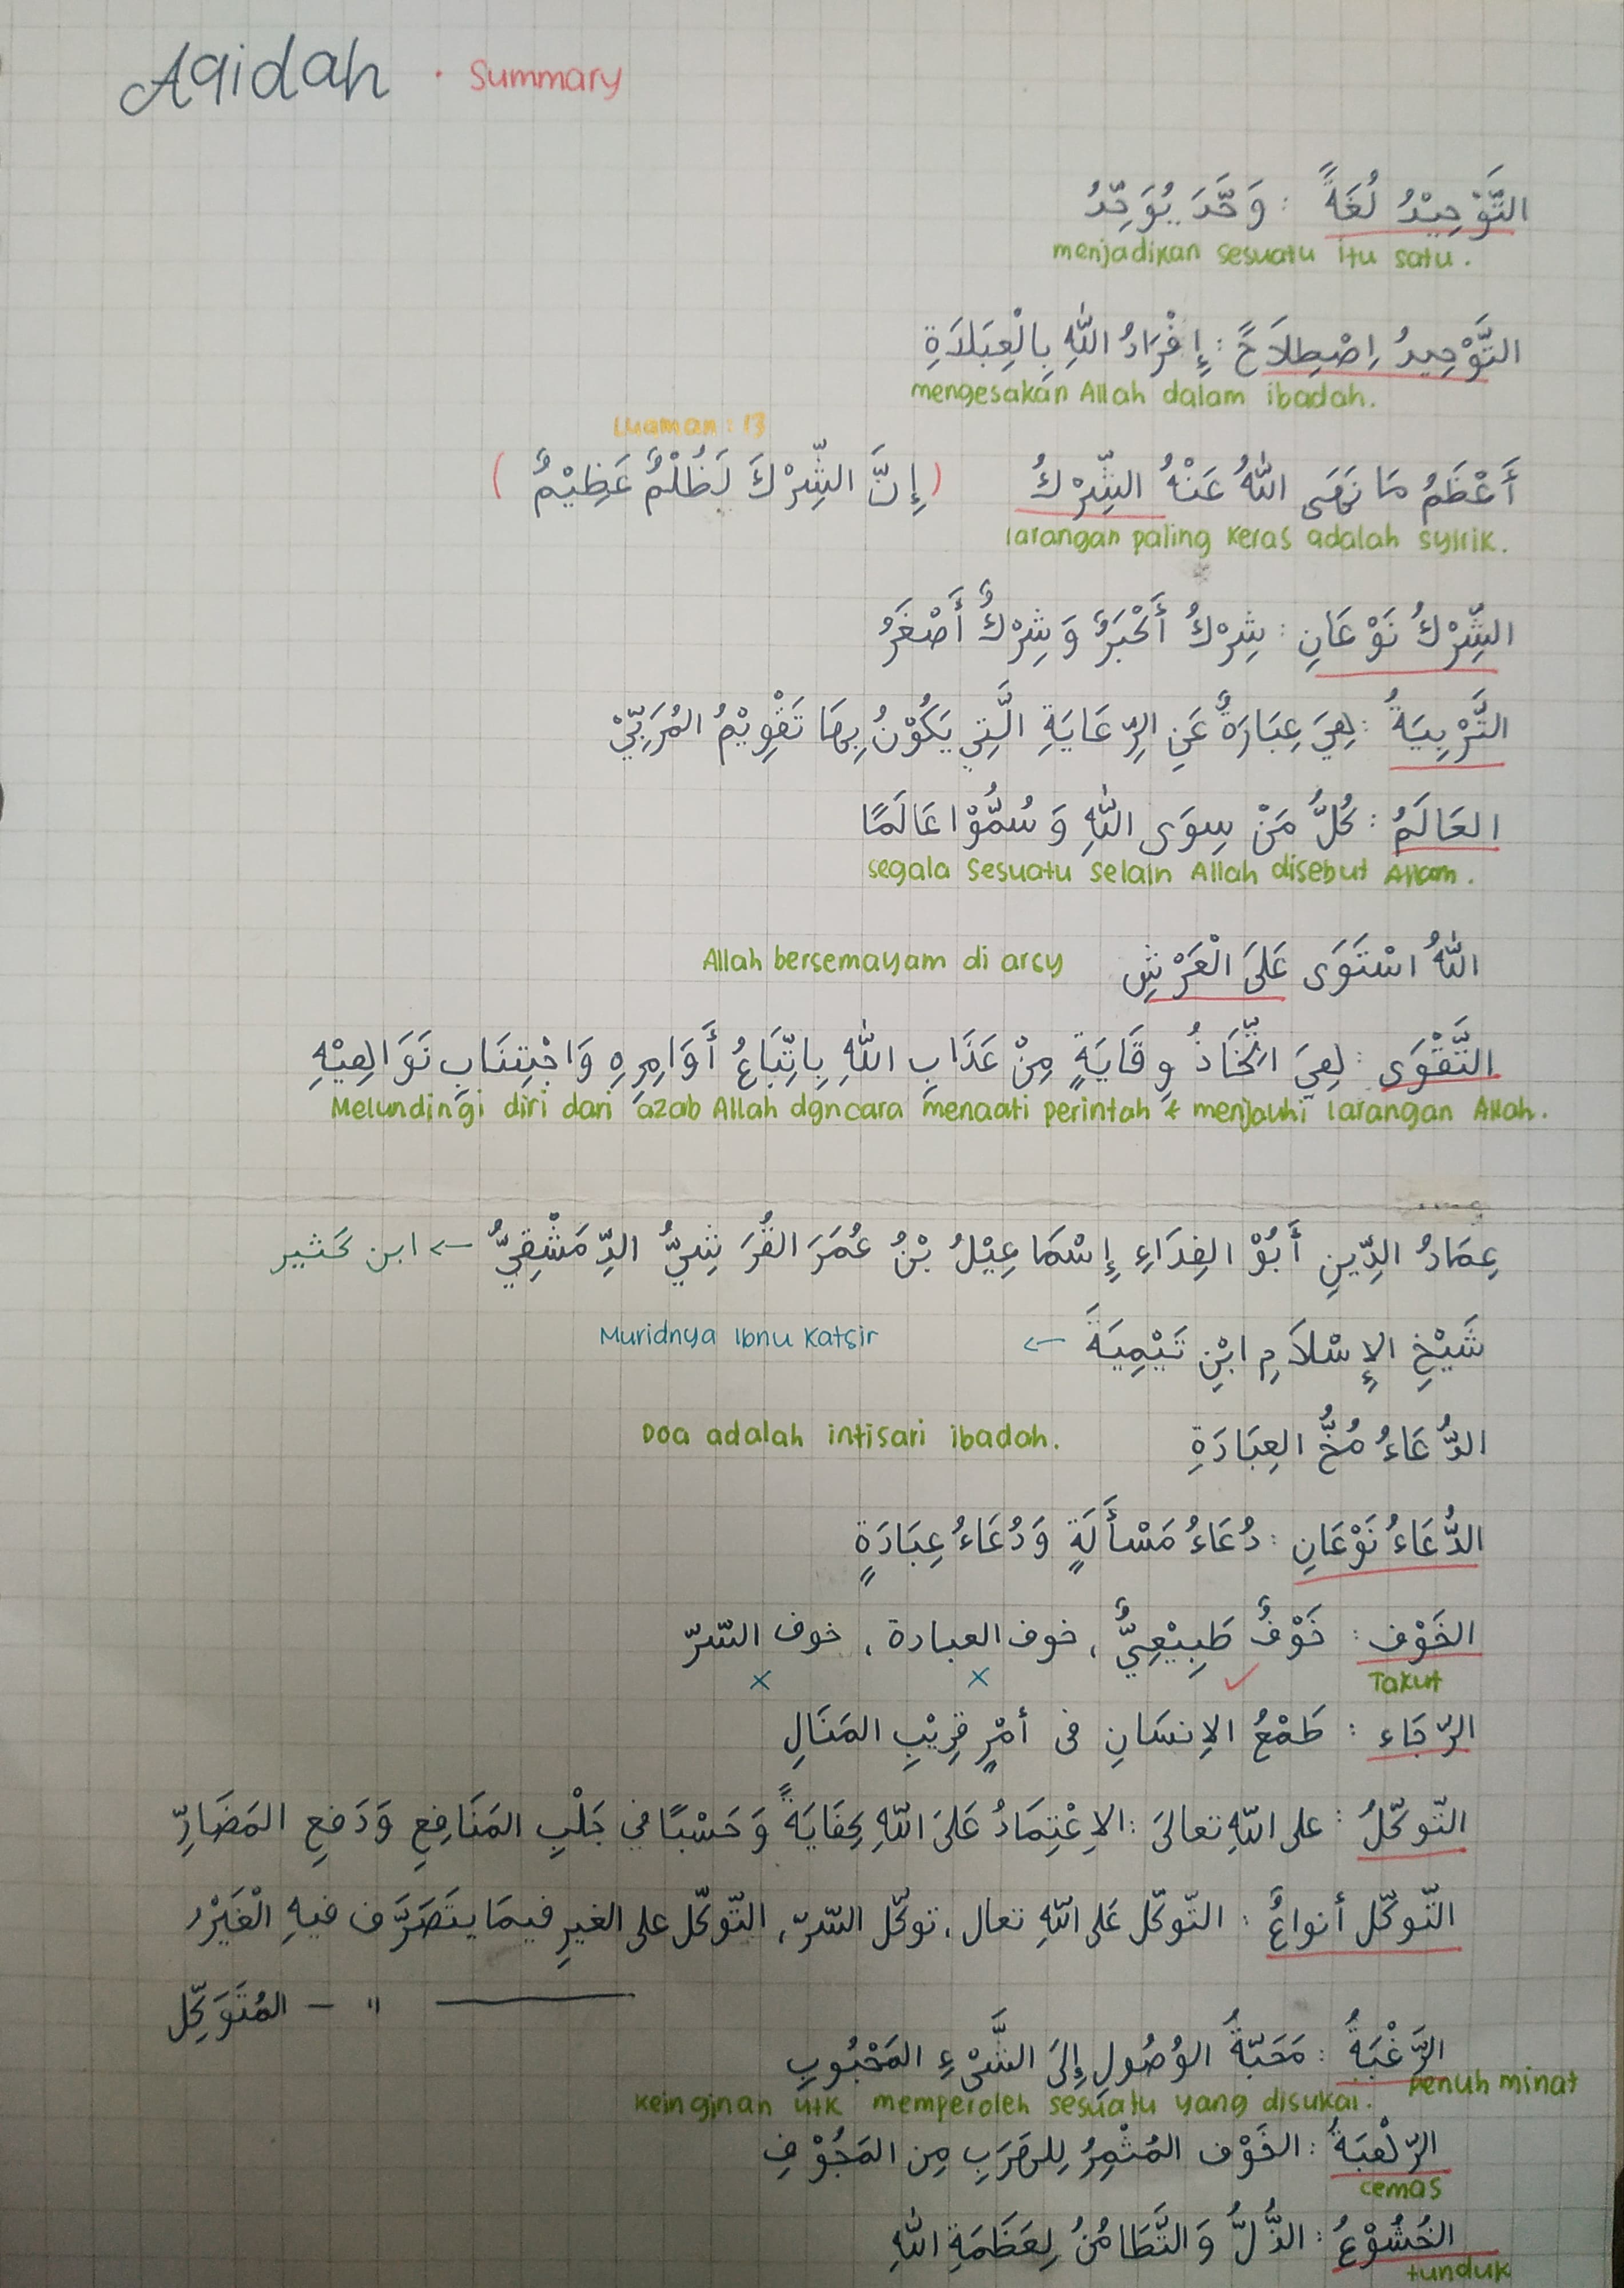 Aqidah . Summary
التَّوْحِيْدُ لُغَةً : وَحَّدَ يُوَحِّدُ
menjadikan sesuatu itu satu.
التَّوْحِيدُ اِصْطِلَاحً : إِفْرَادُ اللّٰهِ بِالْعِبَادَةِ
mengesakan Allah dalam ibadah.
Luqman : 13
أَعْظَمُ مَا نَهَى اللّٰهُ عَنْهُ الشِّرْكُ (إِنَّ الشِّرْكَ لَظُلْمٌ عَظِيْمٌ)
larangan paling keras adalah syirik.
الشِّرْكُ نَوْعَانِ : شِرْكُ أَكْبَرُ وَشِرْكٌ أَصْغَرُ
التَّرْبِيَةُ : هِيَ عِبَارَةٌ عَنِ الرِّعَايَةِ الَّتِي يَكُوْنُ بِهَا تَقْوِيْمُ المُرَبِّيْ
العَالَمُ : كُلُّ مَنْ سِوَى اللّٰهِ وَسُمُّوْا عَالَمًا
segala sesuatu selain Allah disebut Allam.
اللّٰهُ اسْتَوَى عَلَى الْعَرْشِ Allah bersemayam di arsy
التَّقْوَى : هِيَ اتِّخَاذُ وِقَايَةٍ مِنْ عَذَابِ اللّٰهِ بِاتِّبَاعُ أَوَامِرِهِ وَاجْتِنَابِ نَوَاهِيْهِ
Melundingi diri dari azab Allah dgn cara menaati perintah & menjauhi larangan Allah.
عِمَادُ الدِّينِ أَبُوْ الفِدَاءِ إِسْمَاعِيْلُ بْنُ عُمَرَ القُرَشِيُّ الدِّمَشْقِيُّ ← ابن كثير
شَيْخِ الإِسْلَامِ ابْنِ تَيْمِيَةَ ← Muridnya Ibnu Katsir
الدُّعَاءُ مُخُّ العِبَادَةِ Doa adalah intisari ibadah.
الدُّعَاءُ نَوْعَانِ : دُعَاءُ مَسْأَلَةٍ وَدُعَاءُ عِبَادَةٍ
الخَوْف : خَوْفٌ طَبِيْعِيٌّ ، خوف العبادة ، خوف السّرّ
Takut ✓ × ×
الرّجَاء : طَمْعُ الاِنسَانِ فى أمْرٍ قَرِيْبِ المَنَالِ
التّوكّلُ : على اللّهِ تعالىَ : الاِعْتِمَادُ عَلىَ اللّهِ كِفَايَةً وَحَسْبًا في جَلْبِ المَنَافِعِ وَدَفعِ المَضَارِّ
التّوكّل أنواعٌ : التّوكّل عَلى اللّهِ تعال ، توكّل السّرّ ، التّوكّل على الغيرِ فيمَا يتَصَرَّف فيهِ الْغَيْرُ
— " — المُتَوَكِّل
الرَّغْبَةُ : مَحَبَّةُ الوُصُولِ إِلىَ الشَّىْءِ المَحْبُوبِ
penuh minat
keinginan utk memperoleh sesuatu yang disukai.
الرّهْبَةُ : الخَوْف المُثْمِرُ لِلهَرَبِ مِن المَخُوْفِ
cemas
الخُشُوْعُ : الذُّلُّ وَالتَّطَامُنُ لِعَظَمَةِ اللّٰهِ
tunduk